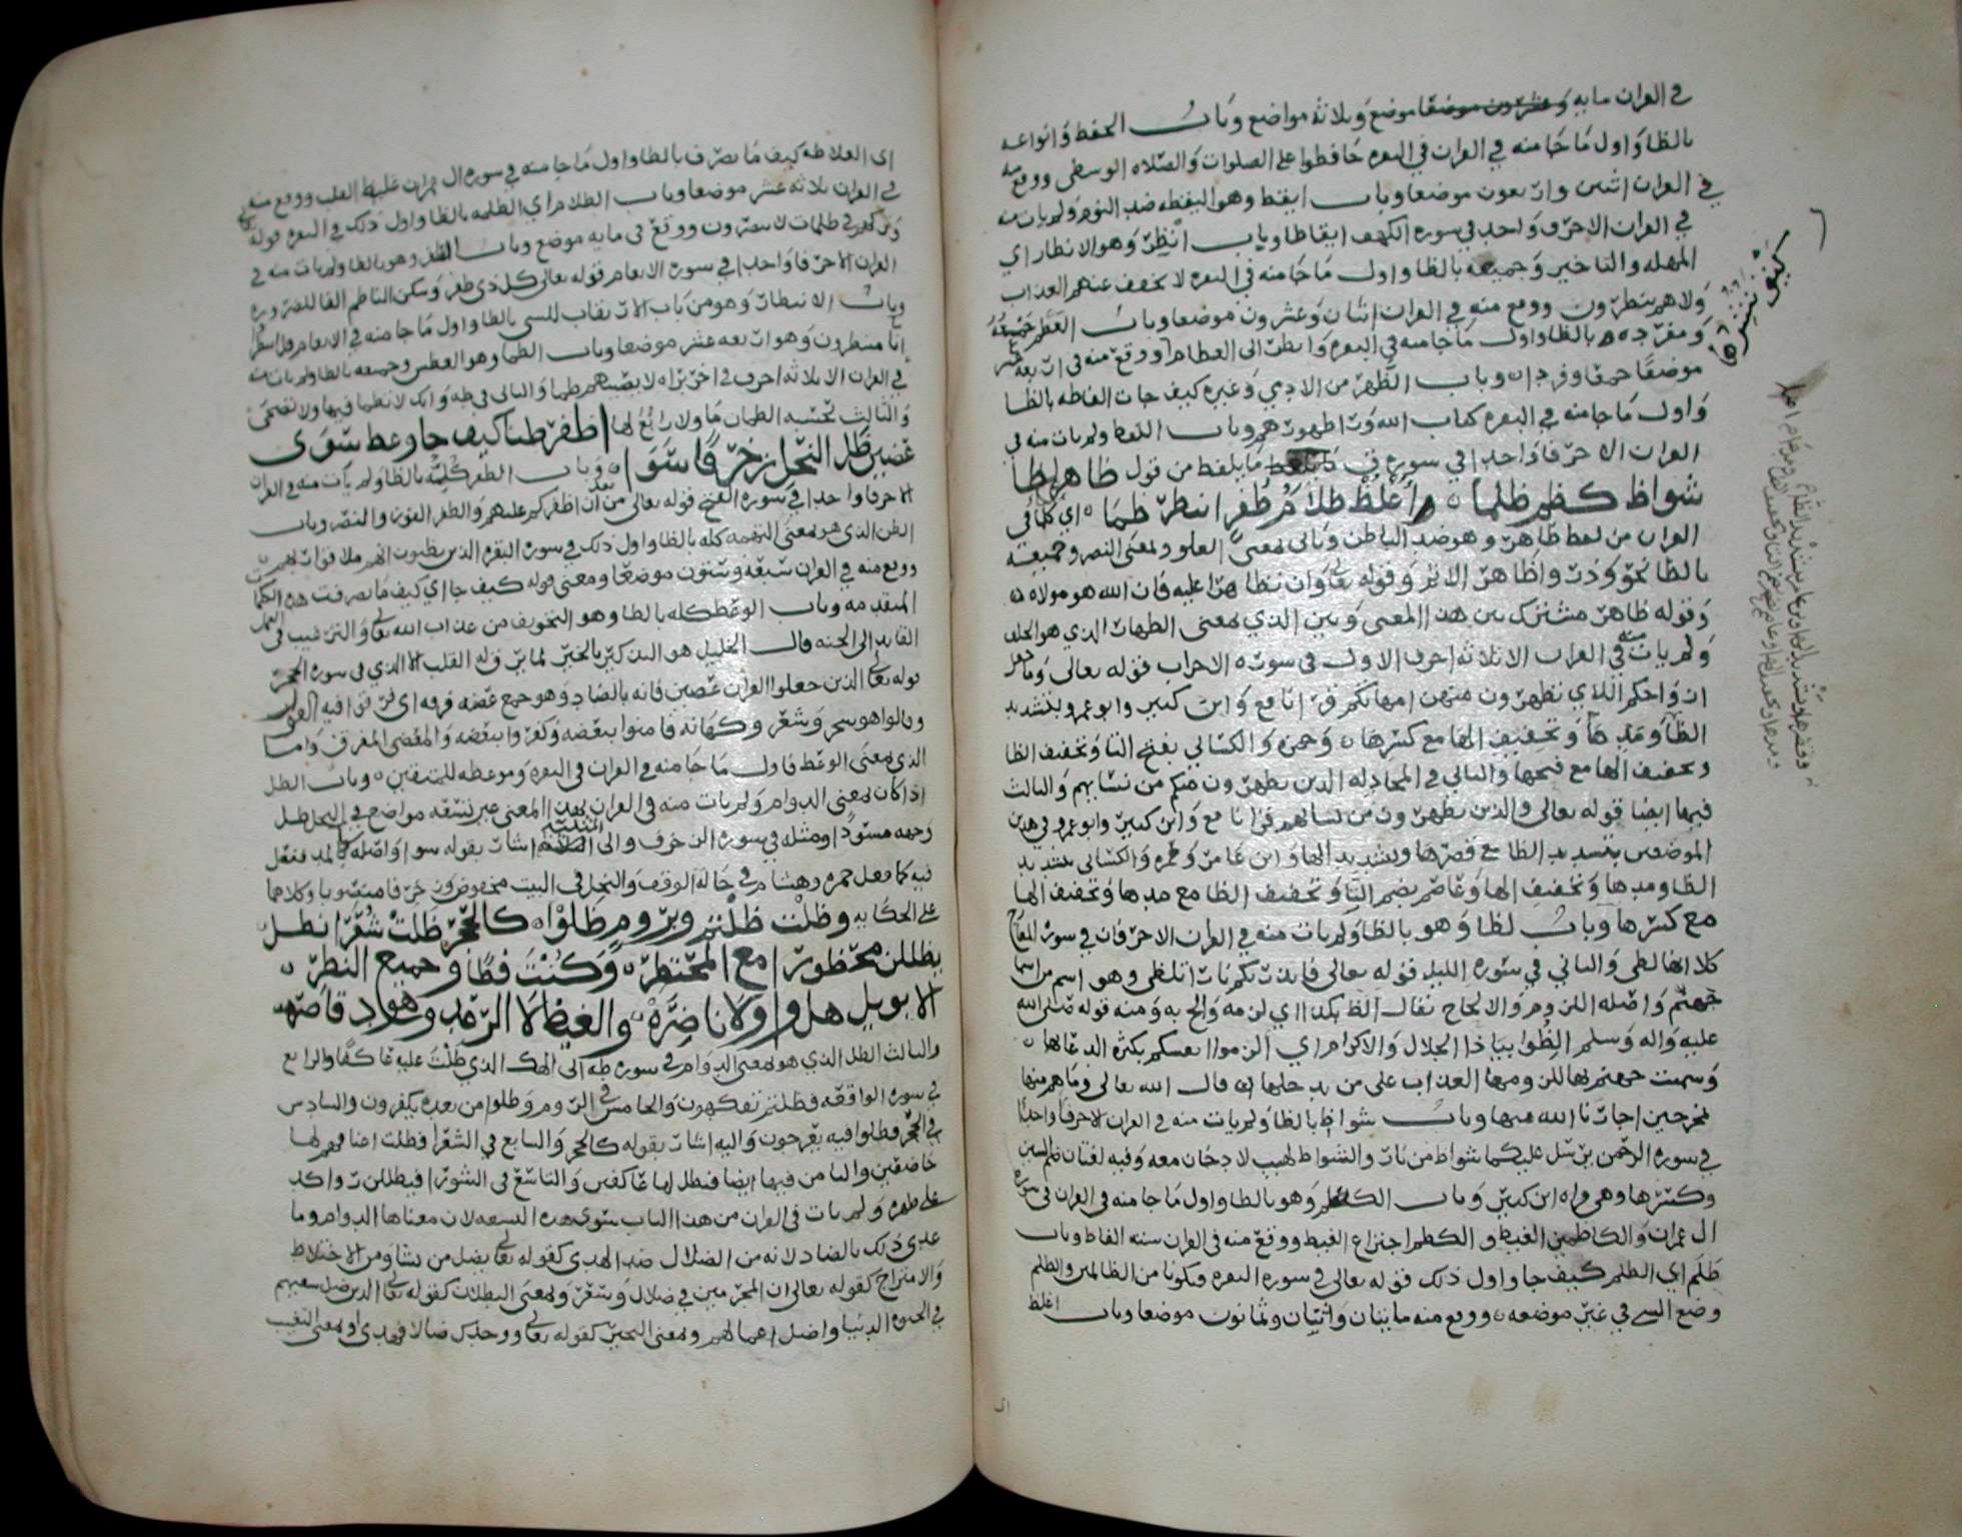 في القران مايه وعشرون موضعا موضع وثلاثة مواضع وباب الحفظ وانواعه
بالظا واول ما جا منه في القران في البقره حافظوا على الصلوات والصلاه الوسطى ووقع منه
في القران اثنين واربعون موضعا وباب ايقظ وهو اليقظه ضد النوم ولم يات منه
في القران الا حرف واحد في سورة الكهف ايقاظا وباب انظر وهو الانظار اي
المهله والتاخير وجميعه بالظا واول ما جا منه في البقره لا يخفف عنهم العذاب
ولا هم ينظرون ووقع منه في القران اثنان وعشرون موضعا وباب العظم جميعه
ومفرده بالظا واول ما جا منه في البقره وانظر الى العظام ووقع منه في اربعة عشر
موضعا جمعا وفردا وباب الظهر من الادمي وغيره كيف جات الفاظه بالظا
واول ما جا منه في البقره كتاب الله ورا ظهورهم وباب اللفظ ولم يات منه في
القران الا حرفا واحدا في سورة ق ما يلفظ من قول ظاهر لظا
شواظ كظم ظلما اغلظ ظلام ظفر انتظر ظما اي كلما في
القران من لفظ ظاهر وهو ضد الباطن وياتي بمعنى العلو وبمعنى النصر وجميعه
بالظا نحو وذروا ظاهر الاثم وقوله تعالى وان تظاهرا عليه فان الله هو مولاه
وقوله ظاهر مشترك بين هذا المعنى وبين الذي بمعنى الظهار الذي هو الحلف
ولم يات منه في القران الا ثلاثة احرف الاول في سورة الاحزاب قوله تعالى وما جعل
ازواجكم اللاي تظهرون منهن امهاتكم قرا نافع وابن كثير وابو عمرو بتشديد
الظا ومدها وتخفيف الها مع كسرها وحمزة والكسائي بفتح التا وتخفيف الظا
وتخفيف الها مع فتحها والثاني في المجادله الذين يظهرون منكم من نسائهم والثالث
فيها ايضا قوله تعالى والذين يظهرون من نسائهم قرا نافع وابن كثير وابو عمرو في هذين
الموضعين بتشديد الظا مع قصرها وتشديد الها وابن عامر وحمزه والكسائي بتشديد
الظا ومدها وتخفيف الها وعاصم بضم اليا وتخفيف الظا مع مدها وتخفيف الها
مع كسرها وباب لظا وهو بالظا ولم يات منه في القران الا حرفان في سورة المعارج
كلا انها لظى والثاني في سورة الليل قوله تعالى فانذرتكم نارا تلظى وهو اسم من اسما
جهنم واصله اللزوم والالحاح يقال الظ بكذا اي لزمه والح به ومنه قوله صلى الله
عليه واله وسلم الظوا بياذا الجلال والاكرام اي الزموا انفسكم بكثرة الدعا بها
وسميت جهنم بها للزومها العذاب على من يدخلها قال الله تعالى وما هم منها
بمخرجين اجارنا الله منها وباب شواظ بالظا ولم يات منه في القران الا حرفا واحدا
في سورة الرحمن يرسل عليكما شواظ من نار والشواظ لهب لا دخان معه وفيه لغتان ضم الشين
وكسرها وهي قراه ابن كثير وباب الكظم وهو بالظا واول ما جا منه في القران في سورة
ال عمران والكاظمين الغيظ والكظم اجتراع الغيظ ووقع منه في القران سته الفاظ وباب
ظلم اي الظلم كيف جا واول ذلك قوله تعالى في سورة البقره فتكونا من الظالمين والظلم
وضع الشي في غير موضعه ووقع منه مايتان واثنان وثمانون موضعا وباب اغلظ
اي الغلاظه كيف ما تصرف بالظا واول ما جا منه في سورة ال عمران غليظ القلب ووقع منه
في القران ثلاثة عشر موضعا وباب الظلام اي الظلمه بالظا واول ذلك في البقره قوله
وتركهم في ظلمات لا يبصرون ووقع في مايه موضع وباب الظفر وهو بالظا ولم يات منه في
القران الا حرفا واحدا في سورة الانعام قوله تعالى كل ذي ظفر وسكن الناظم الفا للضروره
وباب الانتظار وهو من باب الارتقاب للشي بالظا واول ما جا منه في الانعام قل انتظروا
انا منتظرون وهو اربعه عشر موضعا وباب الظما وهو العطش وجميعه بالظا ولم يات منه
في القران الا ثلاثه احرف في اخر براه لا يصيبهم ظما والثاني في طه وانك لا تظما فيها ولا تضحى
والثالث يحسبه الظمان ما ولا رابع لها اظفر ظنا كيف جا وعظ سوى
عضين ظل النحل زخرف سوا وباب الظفر كله بالظا ولم يات منه في القران
الا حرفا واحدا في سورة الفتح قوله تعالى من بعد ان اظفركم عليهم والظفر الفوز والنصر وباب
الظن الذي هو بمعنى التهمه كله بالظا واول ذلك في سورة البقره الذين يظنون انهم ملاقوا ربهم
ووقع منه في القران سبعة وستون موضعا ومعنى قوله كيف جا اي كيف ما تصرفت هذه الكلمات
المتقدمه وباب الوعظ كله بالظا وهو التخويف من عذاب الله تعالى والترغيب في العمل
القايد الى الجنه قال الخليل هو التذكير بالخير لما يرق له القلب الا الذي في سورة الحجر
قوله تعالى الذين جعلوا القران عضين فانه بالضاد وهو جمع عضه فرقه اي فرقوا فيه القول
وقالوا هو سحر وشعر وكهانه فامنوا ببعضه وكفروا ببعضه والمقضي المفرق واما
الذي بمعنى الوعظ فاول ما جا منه في القران في البقره وموعظه للمتقين وباب الظل
اذا كان بمعنى الدوام ولم يات منه في القران بهذا المعنى غير تسعه مواضع في النحل ظل
وجهه مسودا ومثله في سورة الزخرف والى التثنية اشار بقوله سوا واصله بالمد ففعل
فيه كما فعل حمزه وهشام في حالة الوقف والنحل في البيت مخفوض وزخرفا منصوبا وكلاهما
على الحكايه وظلت ظلتم وبروم ظلوا كالحجر ظلت شعرا نظل
يظللن محظورا مع المحتظر وكنت فظا وجميع النظر
الا بويل هل واولى ناضره والغيظ لا الرعد وهود قاصره
والثالث الظل الذي هو بمعنى الدوام في سورة طه الى الهك الذي ظلت عليه عاكفا والرابع
في سورة الواقعه فظلتم تفكهون والخامس في الروم وظلوا من بعده يكفرون والسادس
في الحجر فظلوا فيه يعرجون واليه اشار بقوله كالحجر والسابع في الشعرا فظلت اعناقهم لها
خاضعين والثامن فيها ايضا فنظل لها عاكفين والتاسع في الشورا فيظللن رواكد
على ظهره ولم يات في القران من هذا الباب سوى هذه التسعه لان معناها الدوام وما
عدى ذلك بالضاد لانه من الضلال ضد الهدى كقوله تعالى يضل من يشا ومن الاختلاط
والامتزاج كقوله تعالى ان المجرمين في ضلال وسعر وبمعنى البطلان كقوله تعالى الذين ضل سعيهم
في الحيوة الدنيا واضل اعمالهم وبمعنى التحير كقوله تعالى ووجدك ضالا فهدى او بمعنى التغيب